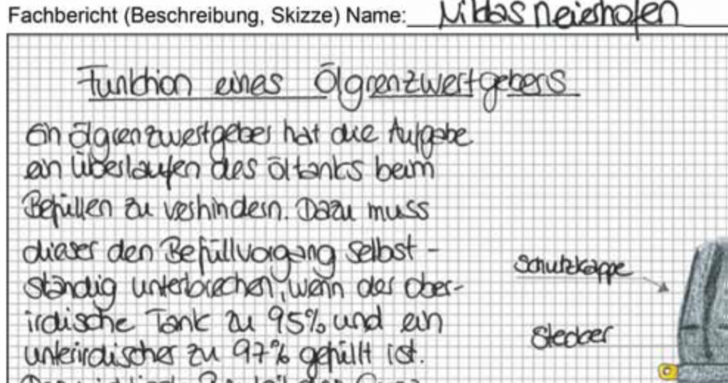 Fachbericht (Beschreibung, Skizze) Name: Niklas Neieshofen
Funktion eines Ölgrenzwertgebers
Ein Ölgrenzwertgeber hat die Aufgabe
ein Überlaufen des Öltanks beim
Befüllen zu verhindern. Dazu muss
dieser den Befüllvorgang selbst-
ständig unterbrechen, wenn der ober-
irdische Tank zu 95% und ein
unterirdischer zu 97% gefüllt ist.
Schutzkappe
Stecker